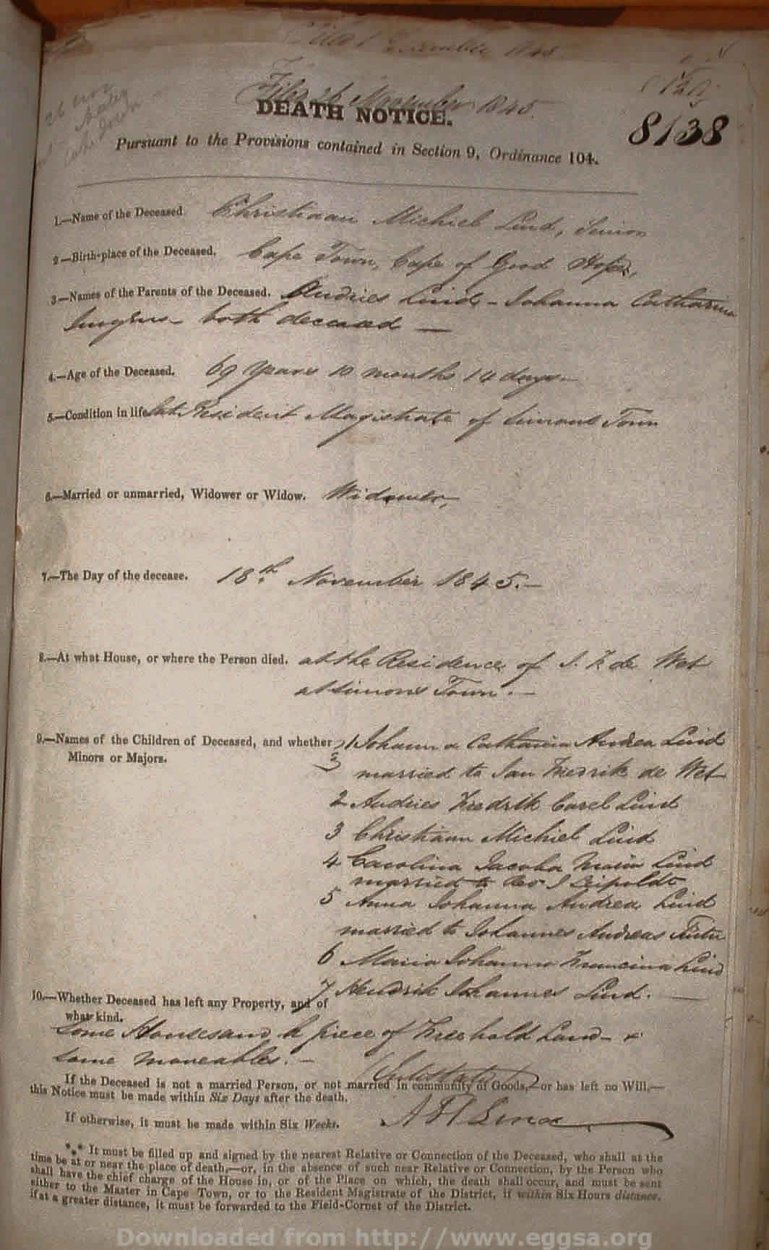 November 1845.
8138
DEATH NOTICE.
Pursuant to the Provisions contained in Section 9, Ordinance 104.
1.—Name of the Deceased Christiaan Michiel Lind, Senior
2.—Birth-place of the Deceased. Cape Town, Cape of Good Hope,
3.—Names of the Parents of the Deceased. Andries Lind - Johanna Catharina
both deceased —
4.—Age of the Deceased. 69 years 10 months 14 days -
5.—Condition in life Resident Magistrate of Simons Town
6.—Married or unmarried, Widower or Widow. Widower,
7.—The Day of the decease. 18th November 1845.—
8.—At what House, or where the Person died. at the Residence of J. F. de Wet
at Simons Town.—
9.—Names of the Children of Deceased, and whether 1 Johanna Catharina Andrea Lind
Minors or Majors. married to Jan Fredrik de Wet
2 Andries Fredrik Carel Lind
3 Christiaan Michiel Lind
4 Carolina Jacoba Maria Lind
married to J Leipoldt
5 Anna Johanna Andrea Lind
married to Johannes Andreas
6 Maria Johanna Francina Lind
7 Hendrik Johannes Lind. —
10.—Whether Deceased has left any Property, and of
what kind.
Some Houses and a piece of Freehold Land - &
some moveables.—
If the Deceased is not a married Person, or not married in community of Goods, or has left no Will,—
this Notice must be made within Six Days after the death.
If otherwise, it must be made within Six Weeks. Lind
*** It must be filled up and signed by the nearest Relative or Connection of the Deceased, who shall at the
time be at or near the place of death,—or, in the absence of such near Relative or Connection, by the Person who
shall have the chief charge of the House in, or of the Place on which, the death shall occur, and must be sent
either to the Master in Cape Town, or to the Resident Magistrate of the District, if within Six Hours distance,
if at a greater distance, it must be forwarded to the Field-Cornet of the District.
Downloaded from http://www.eggsa.org